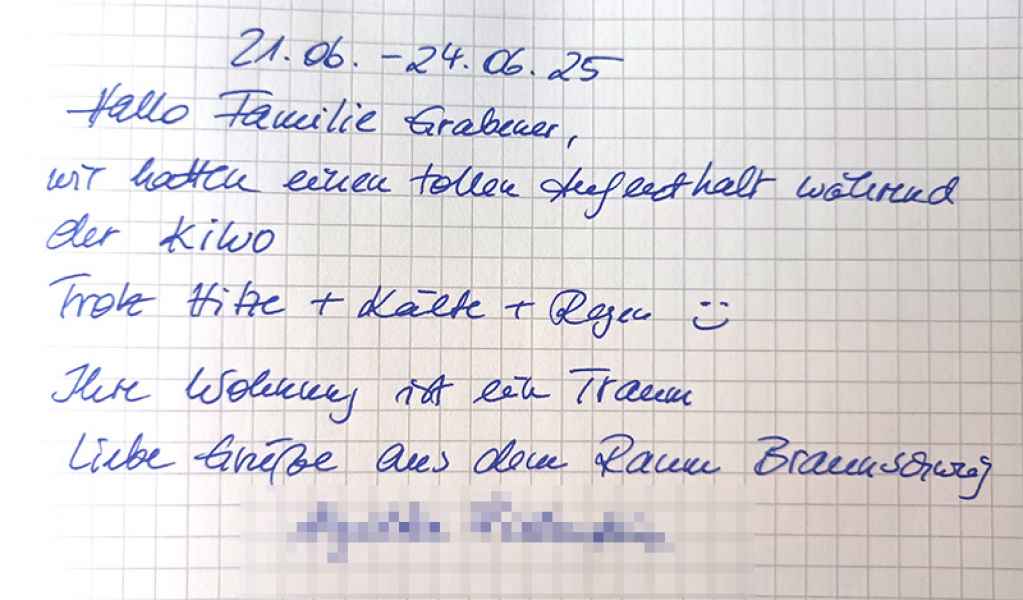 21.06. - 24.06.25
Hallo Familie Grabener,
wir hatten einen tollen Aufenthalt während
der KiWo
Trotz Hitze + Kälte + Regen :)
Ihre Wohnung ist ein Traum
Liebe Grüße aus dem Raum Braunschweig